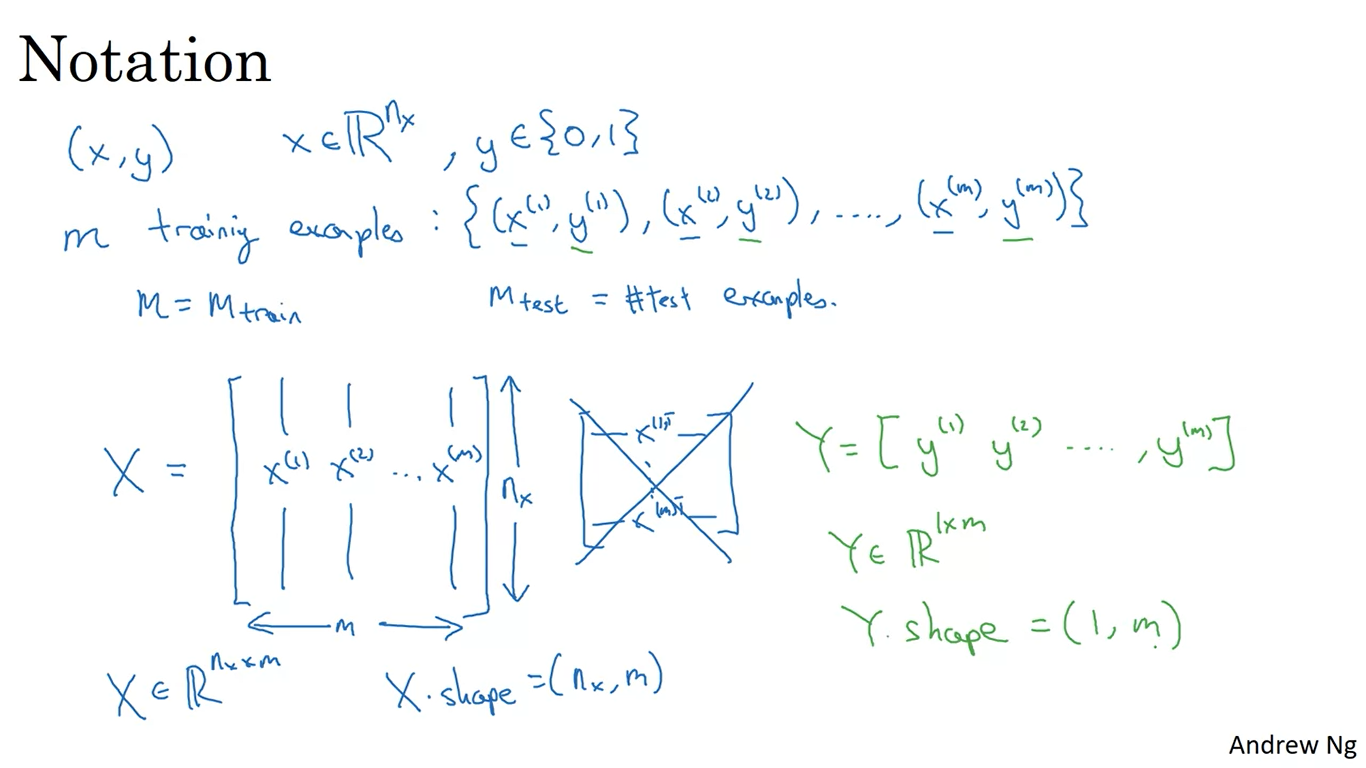 Notation
(x,y) x∈ℝ^{n_x}, y∈{0,1}
m trainig examples : {(x^{(1)}, y^{(1)}), (x^{(2)}, y^{(2)}), ...., (x^{(m)}, y^{(m)})}
M = M_{train} M_{test} = #test examples.
X = [x^{(1)} x^{(2)} ... x^{(m)}] n_x
m
x^{(1)T}
x^{(m)T}
Y = [y^{(1)} y^{(2)} ...., y^{(m)}]
Y∈ ℝ^{1×m}
Y.shape = (1, m)
X ∈ ℝ^{n_x×m} X.shape = (n_x, m)
Andrew Ng